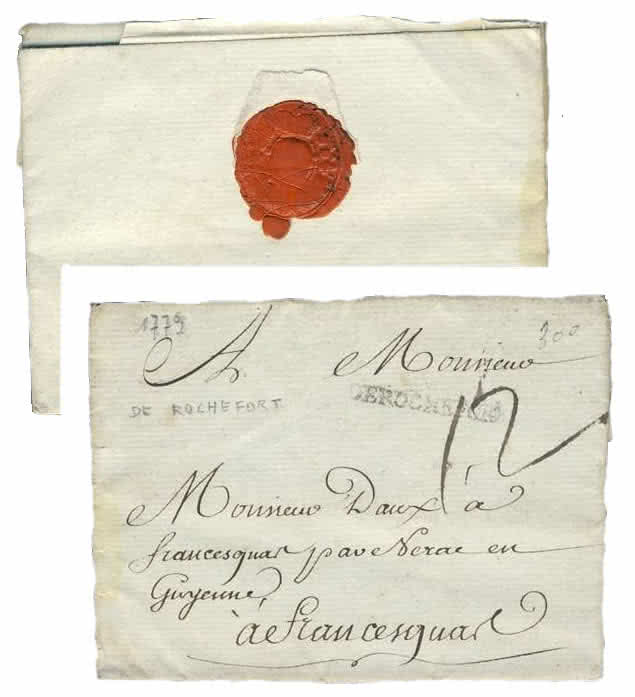 1779
300
A Monsieur
DE ROCHEFORT
DEROCHEFORT
12
Monsieur Daux à
francesquas par Nerac en
Guyenne,
à francesquas